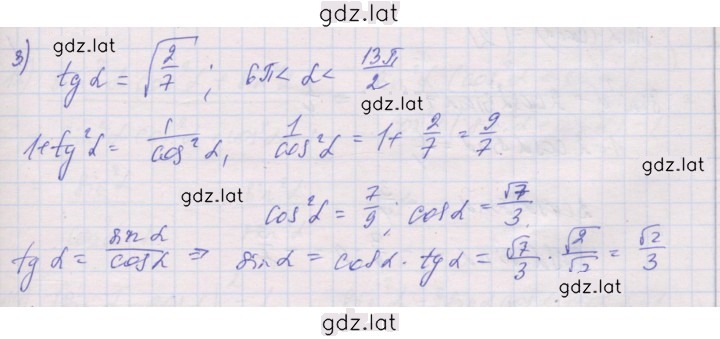 gdz.lat
3) gdz.lat
tg α = √(2/7) ; 6π < α < 13π/2
gdz.lat
1+tg²α = 1/cos²α, 1/cos²α = 1+ 2/7 = 9/7
gdz.lat
gdz.lat
cos²α = 7/9 ; cos α = √7/3.
tg α = sin α/cos α ⇒ sin α = cos α · tg α = √7/3 · √2/√7 = √2/3
gdz.lat
gdz.lat